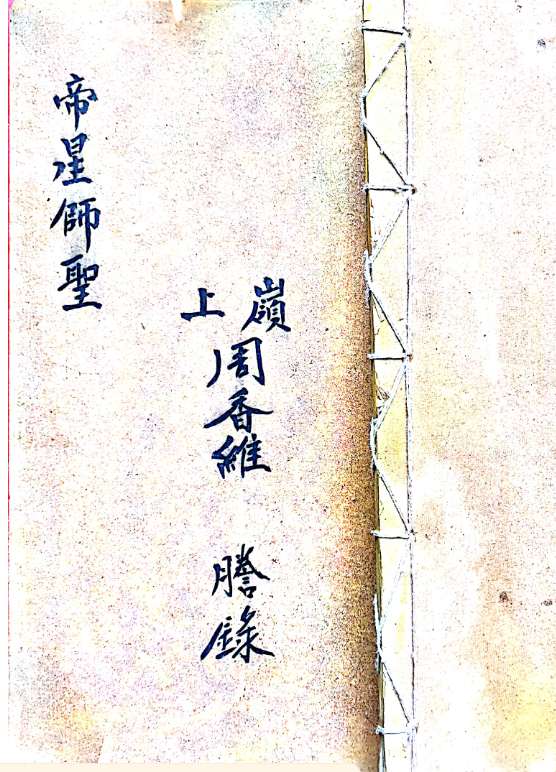 嶺上
周香維 謄錄
帝星師聖